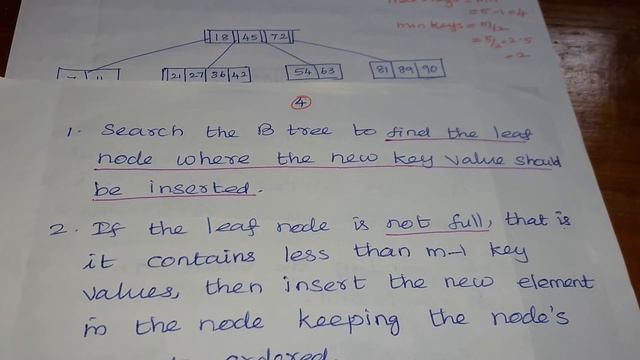 = 5-1 = 4
min keys = m/2
= 5/2 = 2.5
= 2
18 45 72
21 27 36 42
54 63
81 89 90
4
1. Search the B tree to find the leaf
node where the new key value should
be inserted.
2. If the leaf node is not full, that is
it contains less than m-1 key
values, then insert the new element
in the node keeping the node's
ordered.